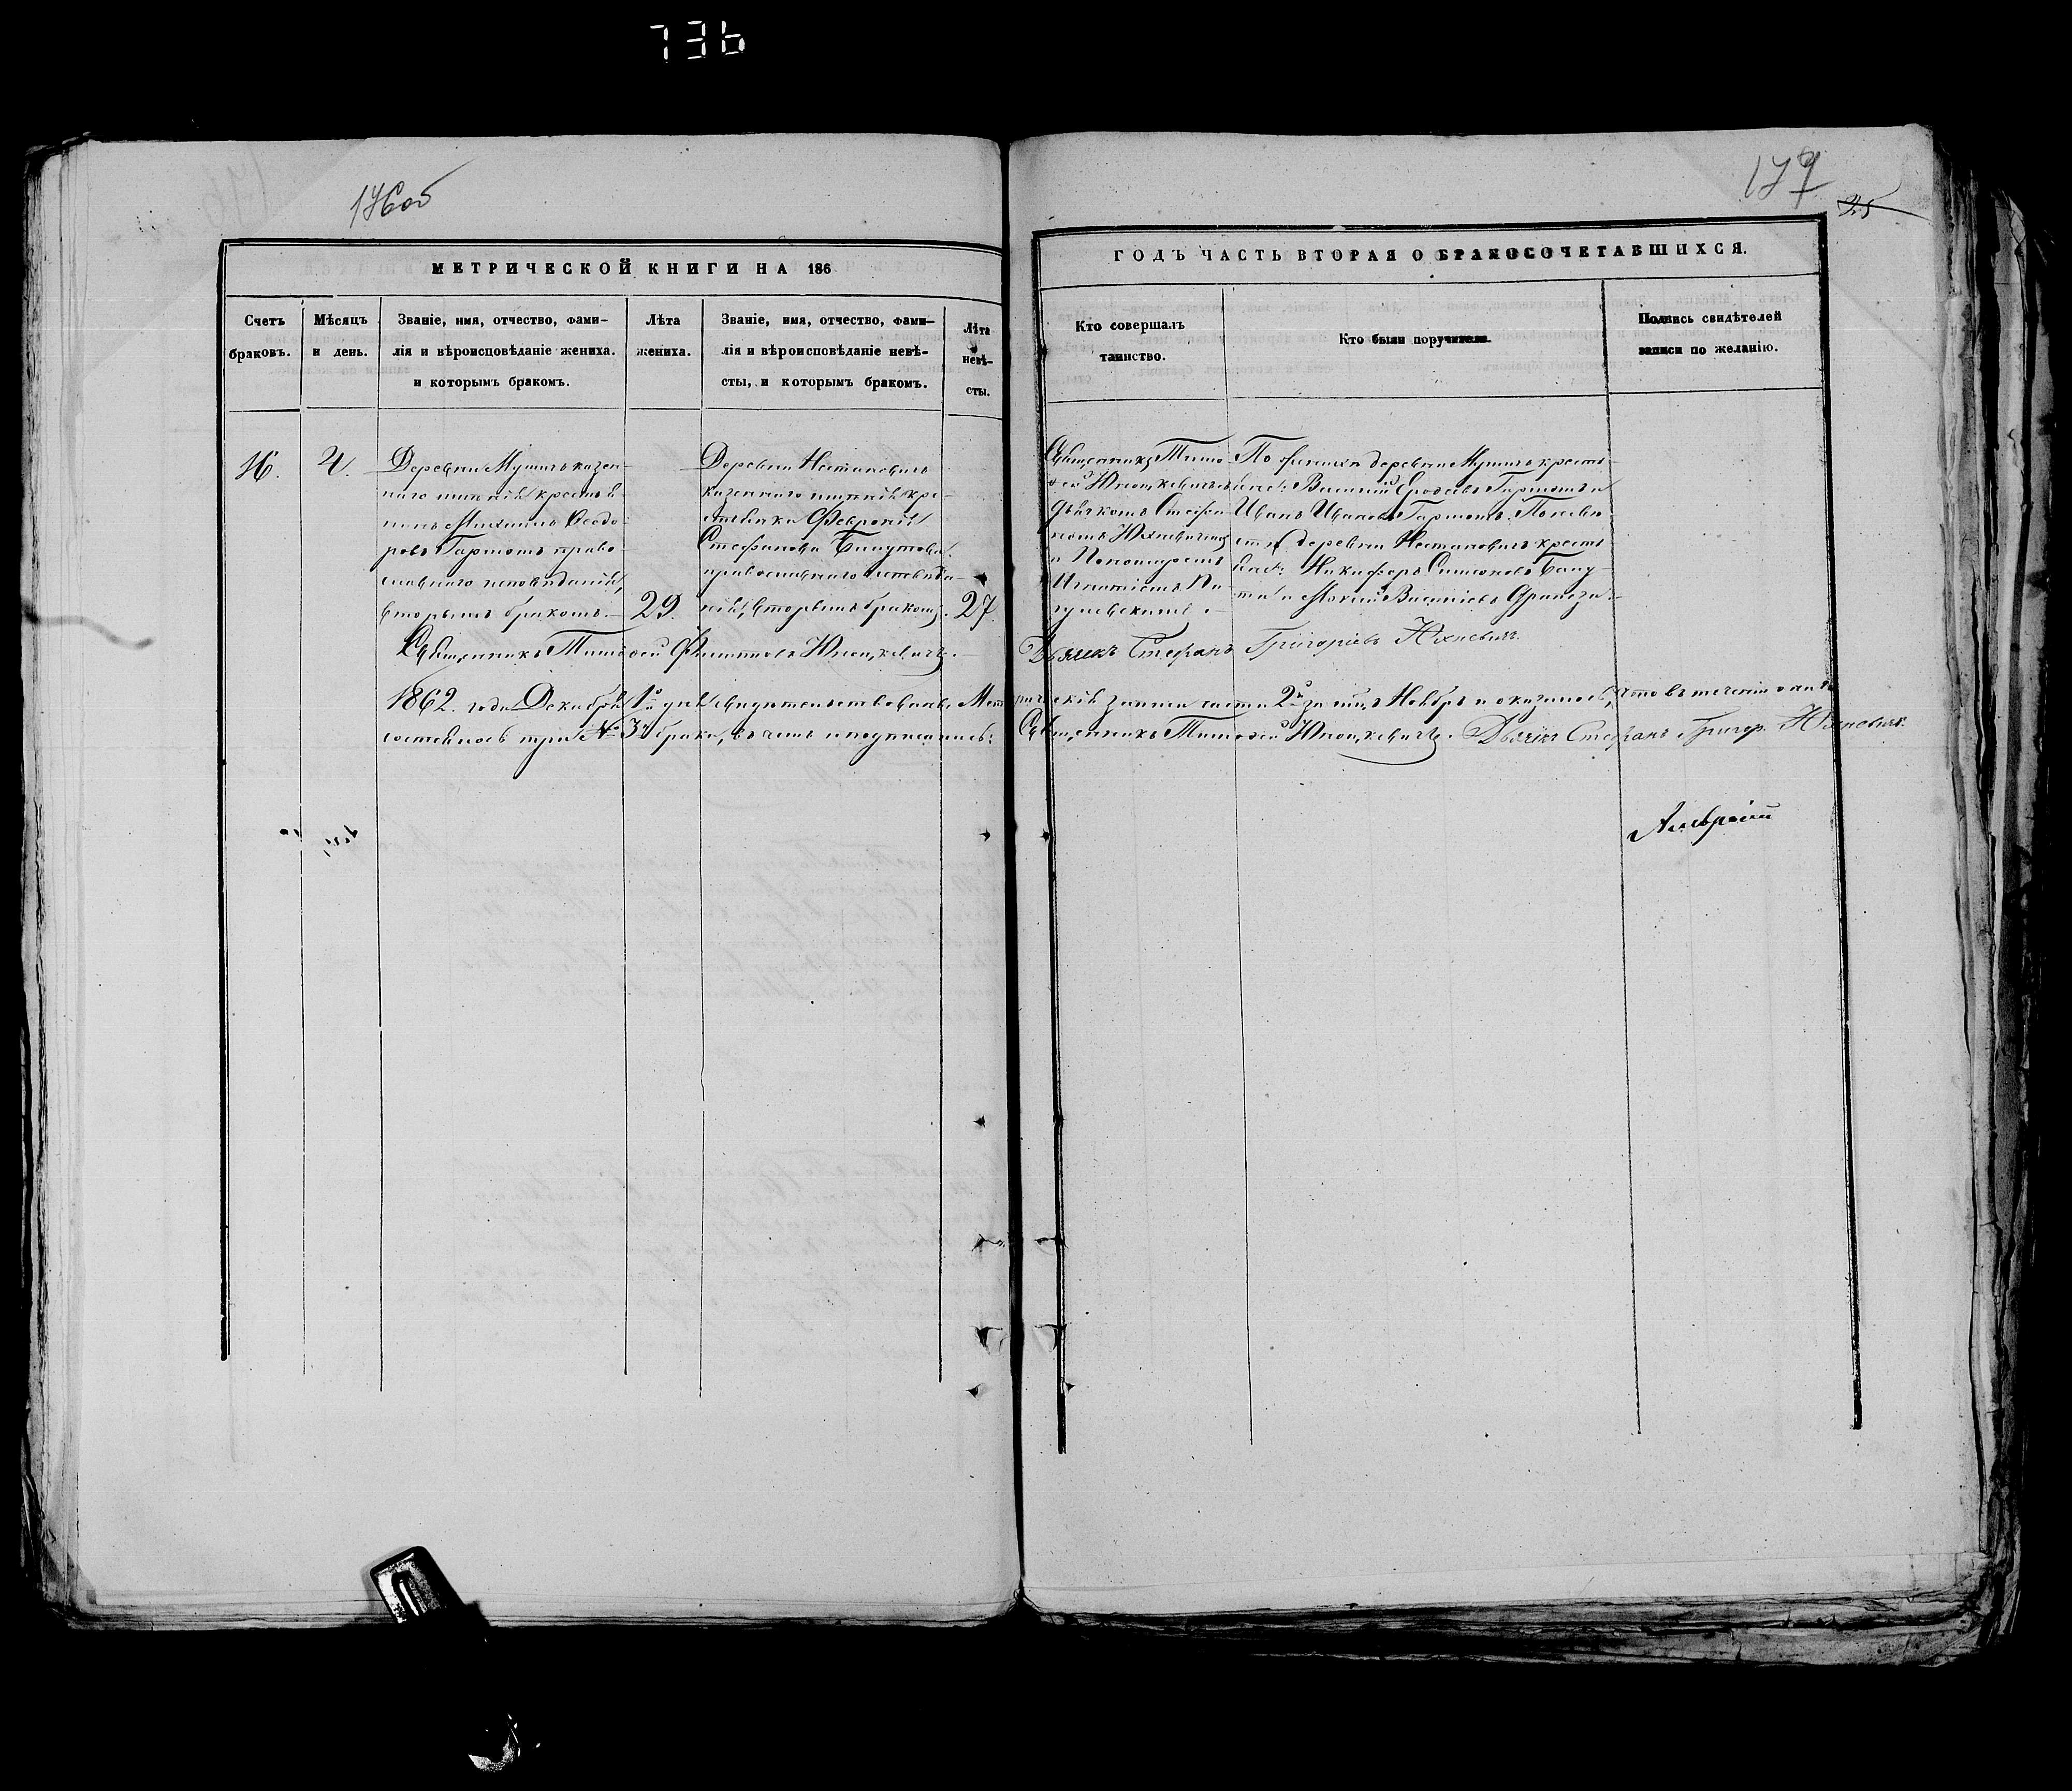 736
176об
177
25
МЕТРИЧЕСКОЙ КНИГИ НА 186
ГОДЪ ЧАСТЬ ВТОРАЯ О БРАКОСОЧЕТАВШИХСЯ.
Счетъ
браковъ.
Мѣсяцъ
и день.
Званіе, имя, отчество, фами-
лія и вѣроисповѣданіе жениха.
и которымъ бракомъ.
Лѣта
жениха.
Званіе, имя, отчество, фами-
лія и вѣроисповѣданіе невѣ-
сты, и которымъ бракомъ.
Лѣта
невѣ-
сты.
Кто совершалъ
таинство.
Кто были поручители.
Подпись свидѣтелей
записи по желанію.
16.
4.
Деревни Мушичъ казен-
наго имѣнія крестья
нинъ Михаилъ Ѳеодо-
ровъ Гармотъ право-
славнаго исповѣданія,
вторымъ бракомъ.
29.
Деревни
казеннаго имѣнія кре-
стьянка Февронія
Стефанова
православнаго исповѣда-
нія, вторымъ бракомъ.
27.
Священникъ Тимо-
ѳей
Дьячкомъ Стефа-
номъ Юхневичемъ
и Пономаремъ
Игнатіемъ
По женихѣ деревни Мушичъ кресть-
яне: Василій Гармотъ и
Иванъ Ивановъ Гармотъ. По невѣ-
стѣ деревни кресть
яне: Никифоръ Симоновъ
и Василіевъ
Священникъ Тимоѳей Филипповъ
Дьячекъ Стефанъ Григоріевъ Юхневичъ.
1862. года Декабря 1го дня свидѣтельствована Метрическія записи части 2й за мць Ноябрь и оказалось, что въ теченіи онаго
состоялось три № 3й брака, въ чемъ и подписались: Священникъ Тимоѳей Дьячекъ Стефанъ Григор. Юхневичъ.